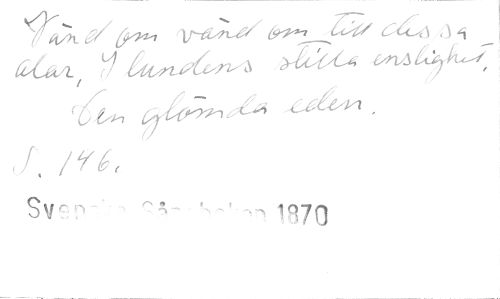 Vänd om vänd om till dessa
dlar, I lundens stilla enslighet.
Den glömda eden.
S. 146.
Svenska Sångboken 1870